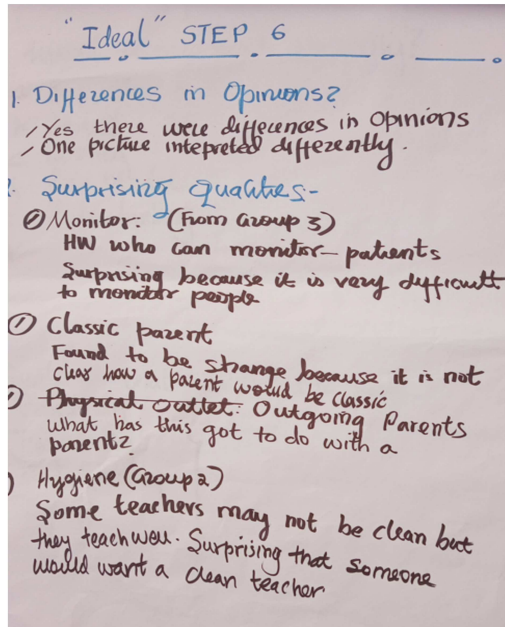 "Ideal" STEP 6
1. Differences in Opinions?
Yes there were differences in Opinions
One picture intepreted differently.
2. Surprising qualities-
Monitor: (From Group 3)
HW who can monitor- patients
Surprising because it is very difficult
to monitor people
Classic parent
Found to be strange because it is not
clear how a parent would be classic
Physical outlet: Outgoing Parents
What has this got to do with a
parent?
Hygiene (Group 2)
Some teachers may not be clean but
they teach well. Surprising that someone
would want a clean teacher